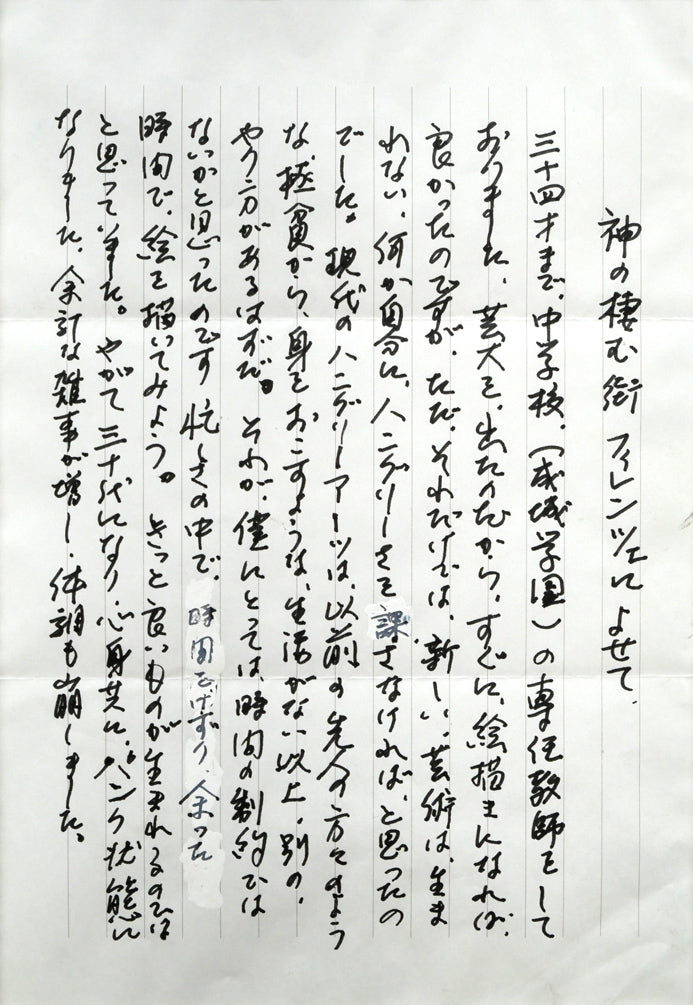 神の棲む街 フィレンツェによせて、
三十四才まで、中学校、(成城学園)の専任教師をして
おりました、芸大を、出たのだから、すぐに、絵描きになれば、
良かったのですが、ただ、それだけでは、新しい、芸術は、生ま
れない、何か自分に、ハングリーさを課さなければ、と思ったの
でした。現代のハングリーアーツは、以前の先人の方々のよう
な極貧から、身をおこすような、生活がない以上、別の、
やり方があるはずだ。それが、僕にとっては時間の制約では
ないかと思ったのです 忙しさの中で、時間をけずり、余った
時間で、絵を描いてみよう。きっと良いものが生まれるのでは
と思って、いました。やがて三十代になり、心身共に、パンク状態に
なりました、余計な雑事が増し、体調も崩しました。